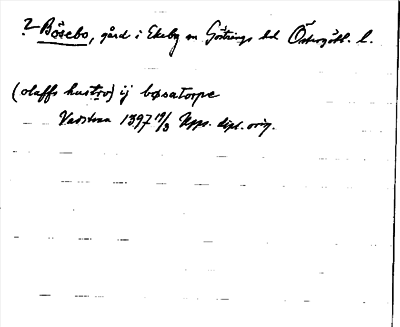 ? Bösebo, gård i Ekeby sn Göstrings hd Östergötl. l.
(olaffs hustrv) ij bøsatorpe
Vadstena 1397 19/3 Upps. dipl. orig.